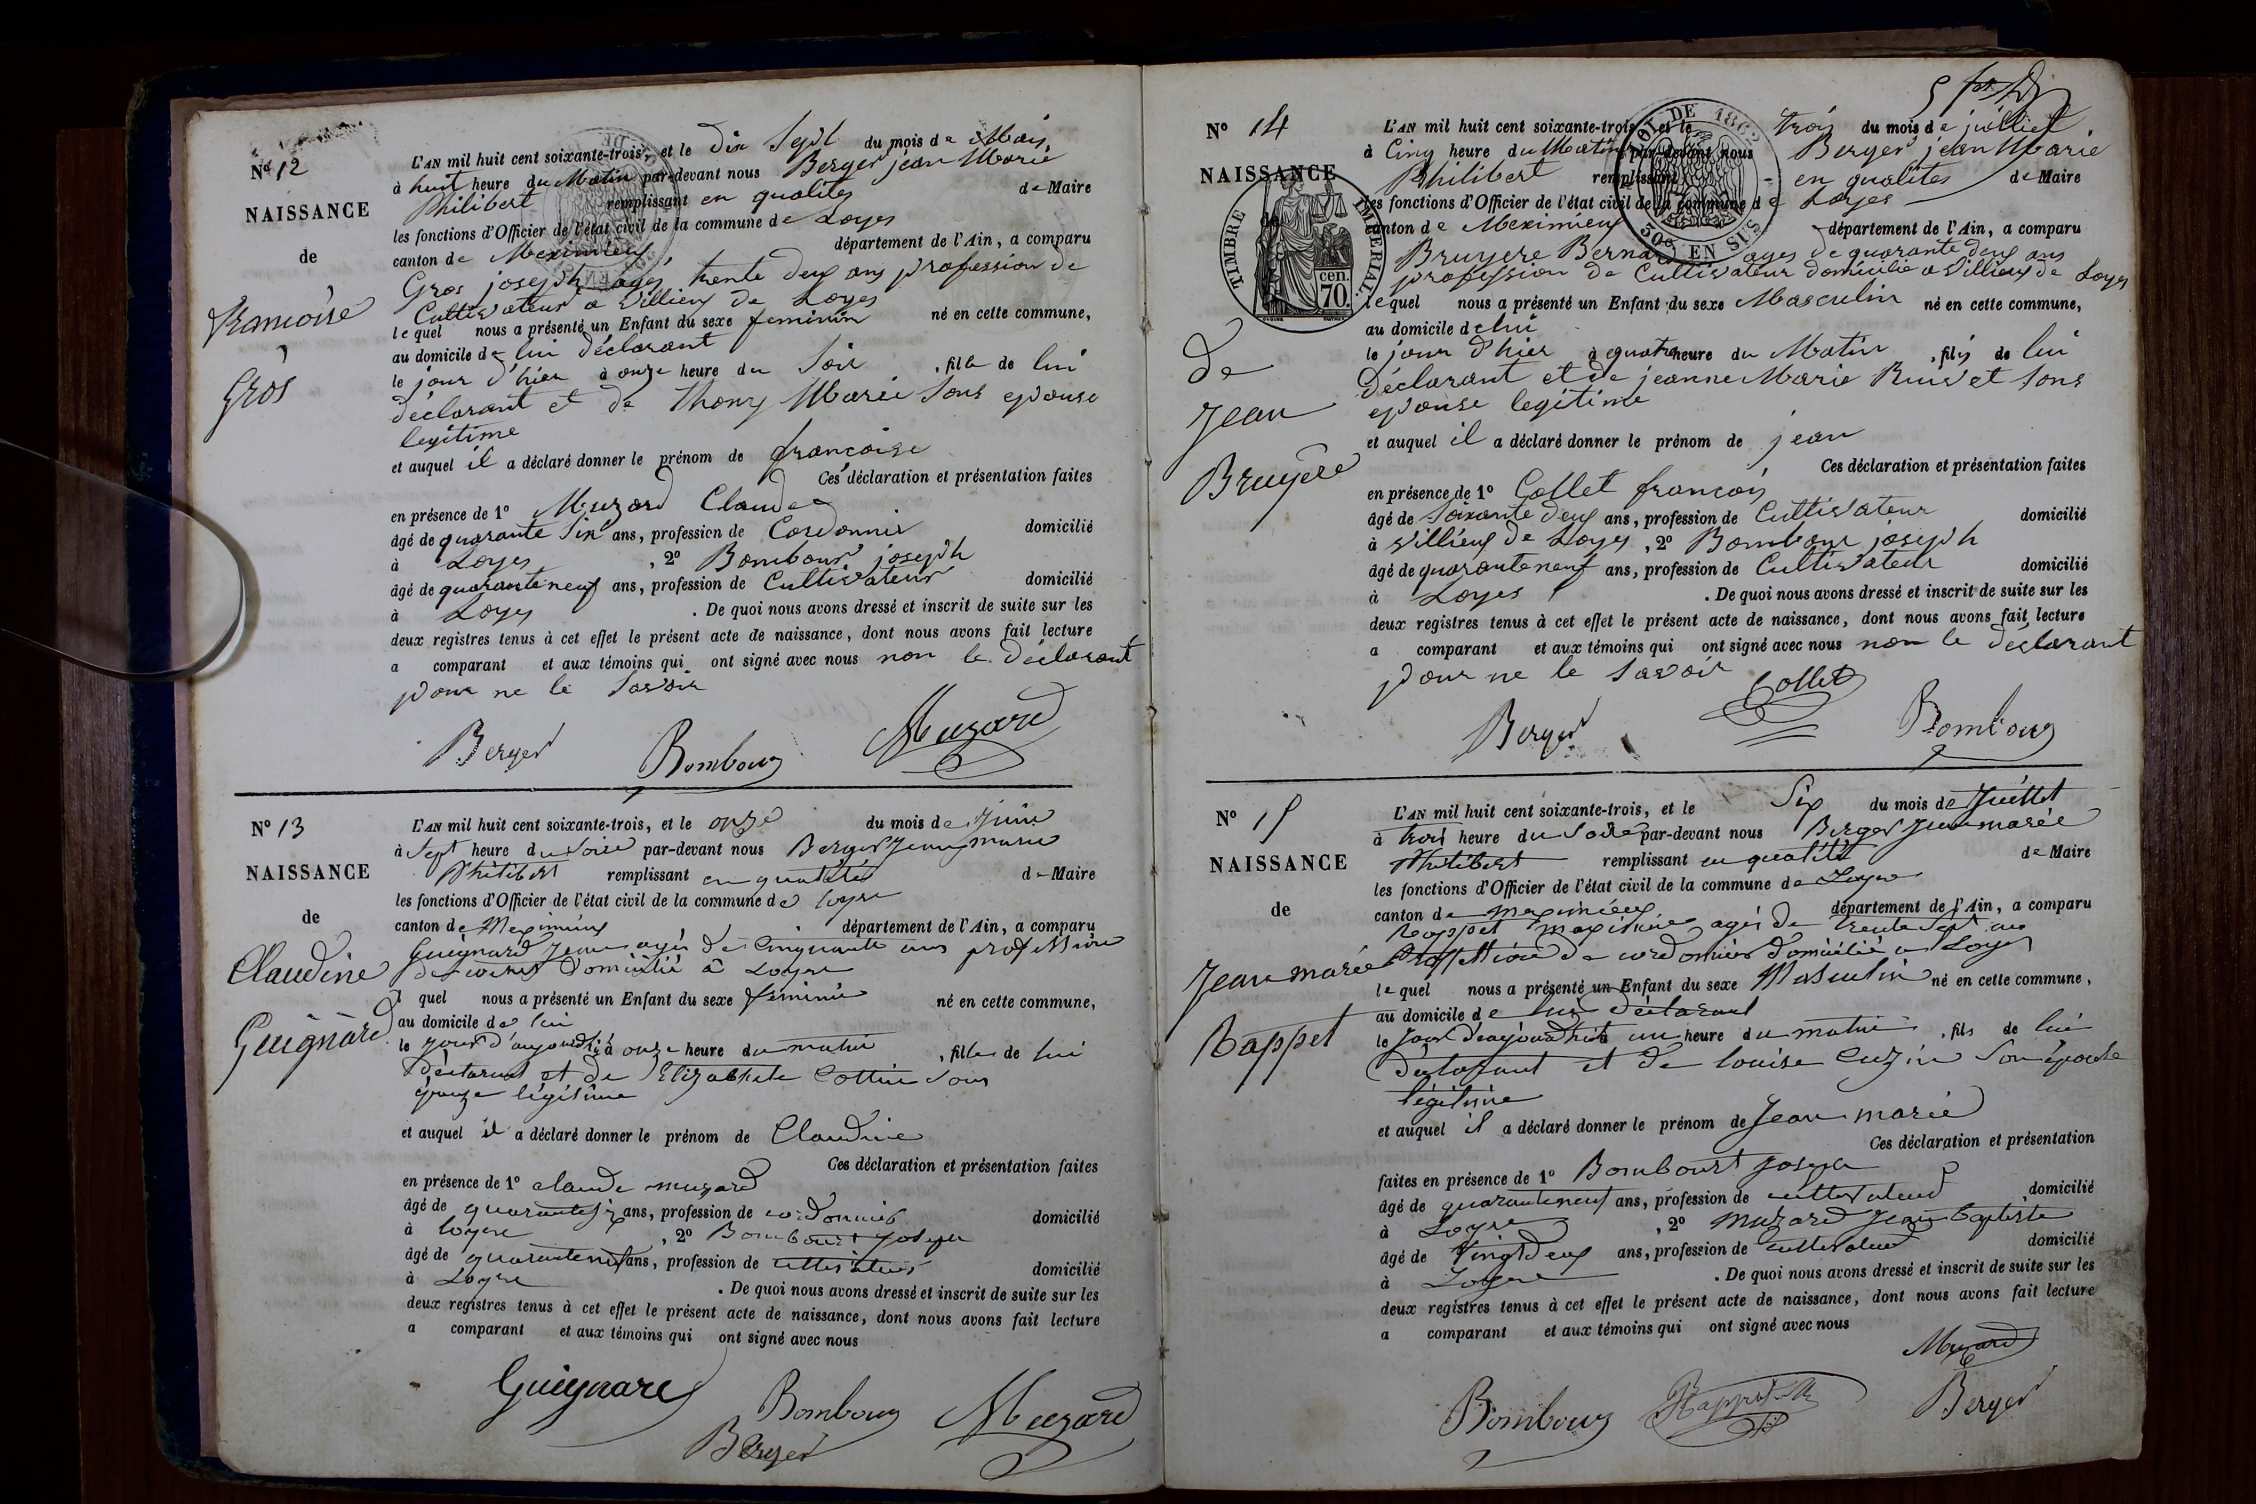 Nº 12
NAISSANCE
de
françoise
Gros
L'AN mil huit cent soixante-trois, et le Dix Sept du mois de Mais
à huit heure du Matin par-devant nous Berger jean Marie
Philibert remplissant en qualités de Maire
les fonctions d'Officier de l'état civil de la commune de Loyes
canton de Meximieux département de l'Ain, a comparu
Gros joseph agés trente deux ans profession de
Cultivateur a Villieux de Loyes
lequel nous a présenté un Enfant du sexe feminin né en cette commune,
au domicile de lui déclarant
le jour d'hier à onze heure du Soir , fille de lui
déclarant et de Thony Marie Sons epouse
legitime
et auquel il a déclaré donner le prénom de françoise
Ces déclaration et présentation faites
en présence de 1º Muzard Claude
âgé de quarante Six ans, profession de Cordonnir domicilié
à Loyes , 2º Bombour joseph
âgé de quaranteneuf ans, profession de Cultivateur domicilié
à Loyes . De quoi nous avons dressé et inscrit de suite sur les
deux registres tenus à cet effet le présent acte de naissance, dont nous avons fait lecture
a comparant et aux témoins qui ont signé avec nous non le déclarant
pour ne le Savoir
Berger Bombour Muzard
Nº 13
NAISSANCE
de
Claudine
Guignard
L'AN mil huit cent soixante-trois, et le onze du mois de Juin
à Sept heure du Soire par-devant nous Berger Jean marie
Philibert remplissant en qualités de Maire
les fonctions d'Officier de l'état civil de la commune de loyse
canton de Meximieux département de l'Ain, a comparu
Guignard Jean agés de Cinquante ans profession
de domicilié à Loyse
l quel nous a présenté un Enfant du sexe feminin né en cette commune,
au domicile de lui
le jour d'aujourdhi à onze heure du matin , fille de lui
déclarant et de Elizabhete Cottin Sons
épouze légitime
et auquel il a déclaré donner le prénom de Claudine
Ces déclaration et présentation faites
en présence de 1º claude muzard
âgé de quarantesix ans, profession de cordonnier domicilié
à loyse , 2º Bombourt Joseph
âgé de quaranteneuf ans, profession de cultivateur domicilié
à Loyse . De quoi nous avons dressé et inscrit de suite sur les
deux registres tenus à cet effet le présent acte de naissance, dont nous avons fait lecture
a comparant et aux témoins qui ont signé avec nous
Guignard Bombour Muzard
Berger
Nº 14
NAISSANCE
de
de
Jean
Bruyère
TIMBRE IMPERIAL
cen.
70.
LOI DE 1862
50c EN SUS
L'AN mil huit cent soixante-trois, et le trois du mois de juillet
à Cinq heure du Matin par-devant nous Berger jean Marie
Philibert remplissant en qualités de Maire
les fonctions d'Officier de l'état civil de la commune de Loyes
canton de Meximieux département de l'Ain, a comparu
Bruyere Bernard ages de quarante deux ans
profession de Cultivateur domicilié a Villieux de Loyes
lequel nous a présenté un Enfant du sexe Masculin né en cette commune,
au domicile de lui
le jour d'hier à quatre heure du Matin , fils de lui
déclarant et de jeanne Marie Ruivet Sons
epouse legitime
et auquel il a déclaré donner le prénom de jean
Ces déclaration et présentation faites
en présence de 1º Collet françois
âgé de Soixante deux ans, profession de Cultivateur domicilié
à Villieux de Loyes , 2º Bombour joseph
âgé de quaranteneuf ans, profession de Cultivateur domicilié
à Loyes . De quoi nous avons dressé et inscrit de suite sur les
deux registres tenus à cet effet le présent acte de naissance, dont nous avons fait lecture
a comparant et aux témoins qui ont signé avec nous non le déclarant
pour ne le Savoir
Collet
Berger Bombour
Nº 15
NAISSANCE
de
Jean marie
Rappet
L'AN mil huit cent soixante-trois, et le Six du mois de Juillet
à trois heure du Soire par-devant nous Berger Jean marie
Philibert remplissant en qualités de Maire
les fonctions d'Officier de l'état civil de la commune de Loyse
canton de meximieux département de l'Ain, a comparu
Rappet agés de trente Sept ans
Proffession de cordonnier domicilié a Loyes
lequel nous a présenté un Enfant du sexe Masculin né en cette commune,
au domicile de lui déclarant
le Jour d'aujourdhui à un heure du matin , fils de lui
déclarant et de louise Cuzin Son épouse
légitime
et auquel il a déclaré donner le prénom de Jean marie
Ces déclaration et présentation
faites en présence de 1º Bombourt Joseph
âgé de quaranteneuf ans, profession de cultivateur domicilié
à Loyse , 2º Muzard Jean Baptiste
âgé de Vingtdeux ans, profession de cultivateur domicilié
à Loyse . De quoi nous avons dressé et inscrit de suite sur les
deux registres tenus à cet effet le présent acte de naissance, dont nous avons fait lecture
a comparant et aux témoins qui ont signé avec nous
Muzard
Bombour Rappet Berger